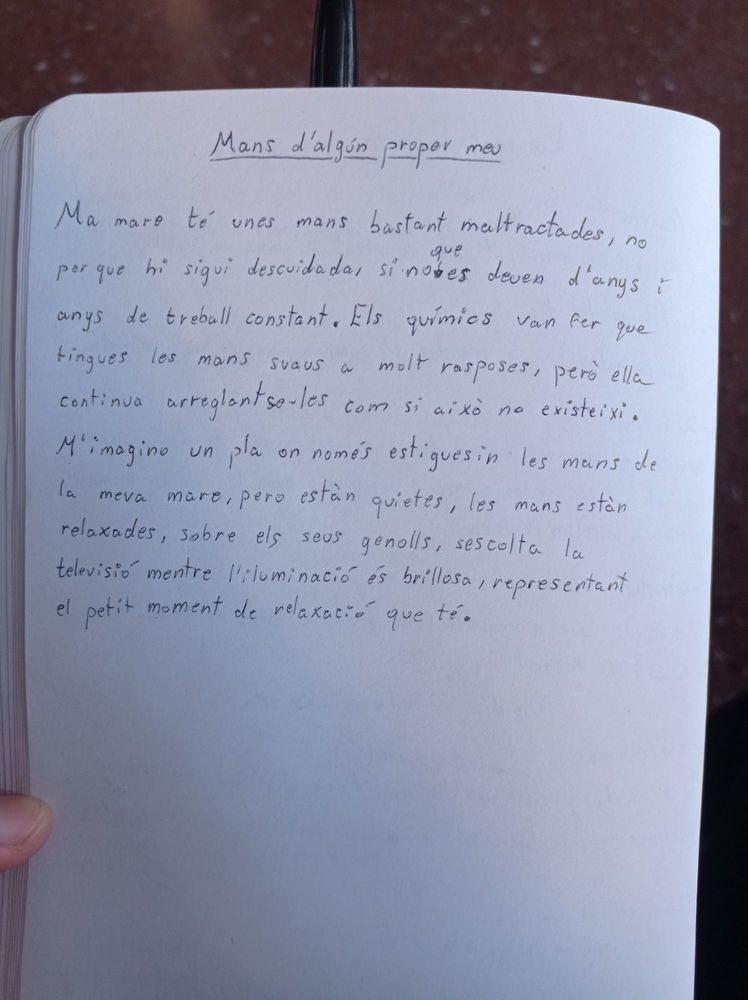 Mans d'algún proper meu
Ma mare té unes mans bastant maltractades, no
per que hi sigui descuidada, si no que es deuen d'anys i
anys de treball constant. Els químics van fer que
tingues les mans svaus a molt rasposes, però ella
continua arreglantse-les com si això no existeixi.
M'imagino un pla on només estiguesin les mans de
la meva mare, pero estàn quietes, les mans estàn
relaxades, sobre els seus genolls, sescolta la
televisió mentre l'iluminació és brillosa, representant
el petit moment de relaxació que té.